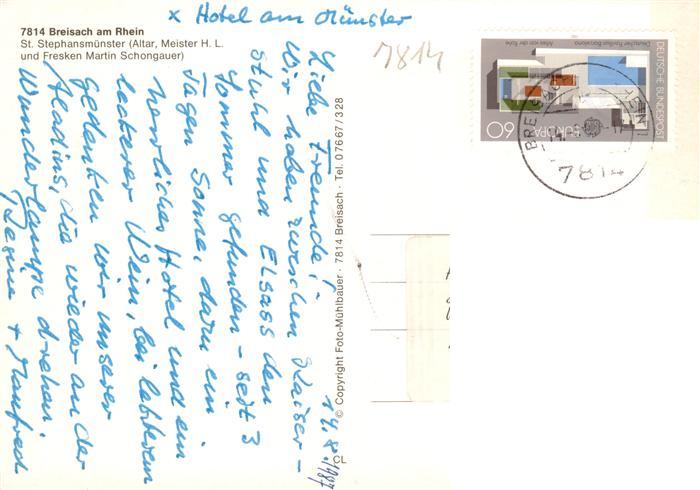 x Hotel am Münster
7814 Breisach am Rhein
St. Stephansmünster (Altar, Meister H. L.
und Fresken Martin Schongauer)
7814
14.8.1987
Liebe Freunde!
Wir haben zwischen Kaiser-
stuhl und Elsass den
Sommer gefunden - seit 3
Tagen Sonne, dazu ein
herrliches Hotel und ein
leckerer Wein, bei letzterem
gedenken wir unserer
Aladins, die wieder an der
Wunderlampe drehen.
Regine + Manfred
© Copyright Foto-Mühlbauer · 7814 Breisach · Tel. 07667/328
CL
DEUTSCHE BUNDESPOST
Deutscher Pavillon Barcelona
Mies van der Rohe
60
EUROPA
BREISACH
7814